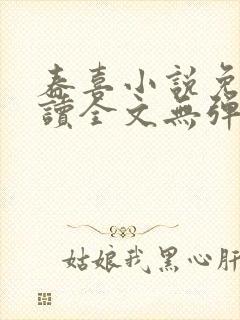 春喜小說免
讀全文無彈
姑娘我黑心肝